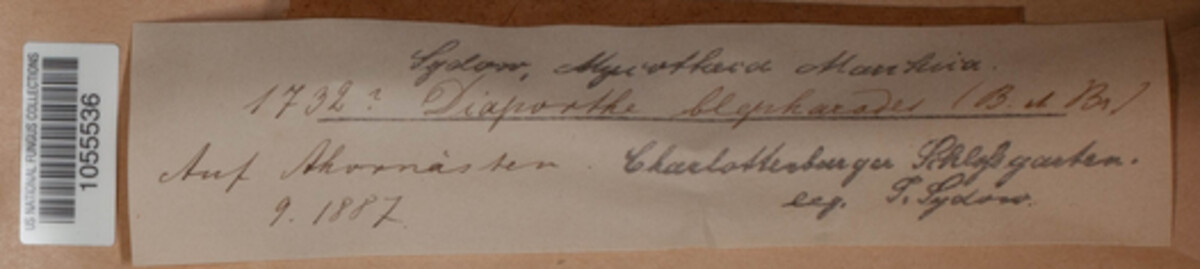 US NATIONAL FUNGUS COLLECTIONS
1055536
Sydow, Mycotheca Marchica.
1732? Diaporthe blepharodes (B. et Br.)
Auf Ahornästen. Charlottenburger Schloßgarten.
9. 1887. leg. P. Sydow.